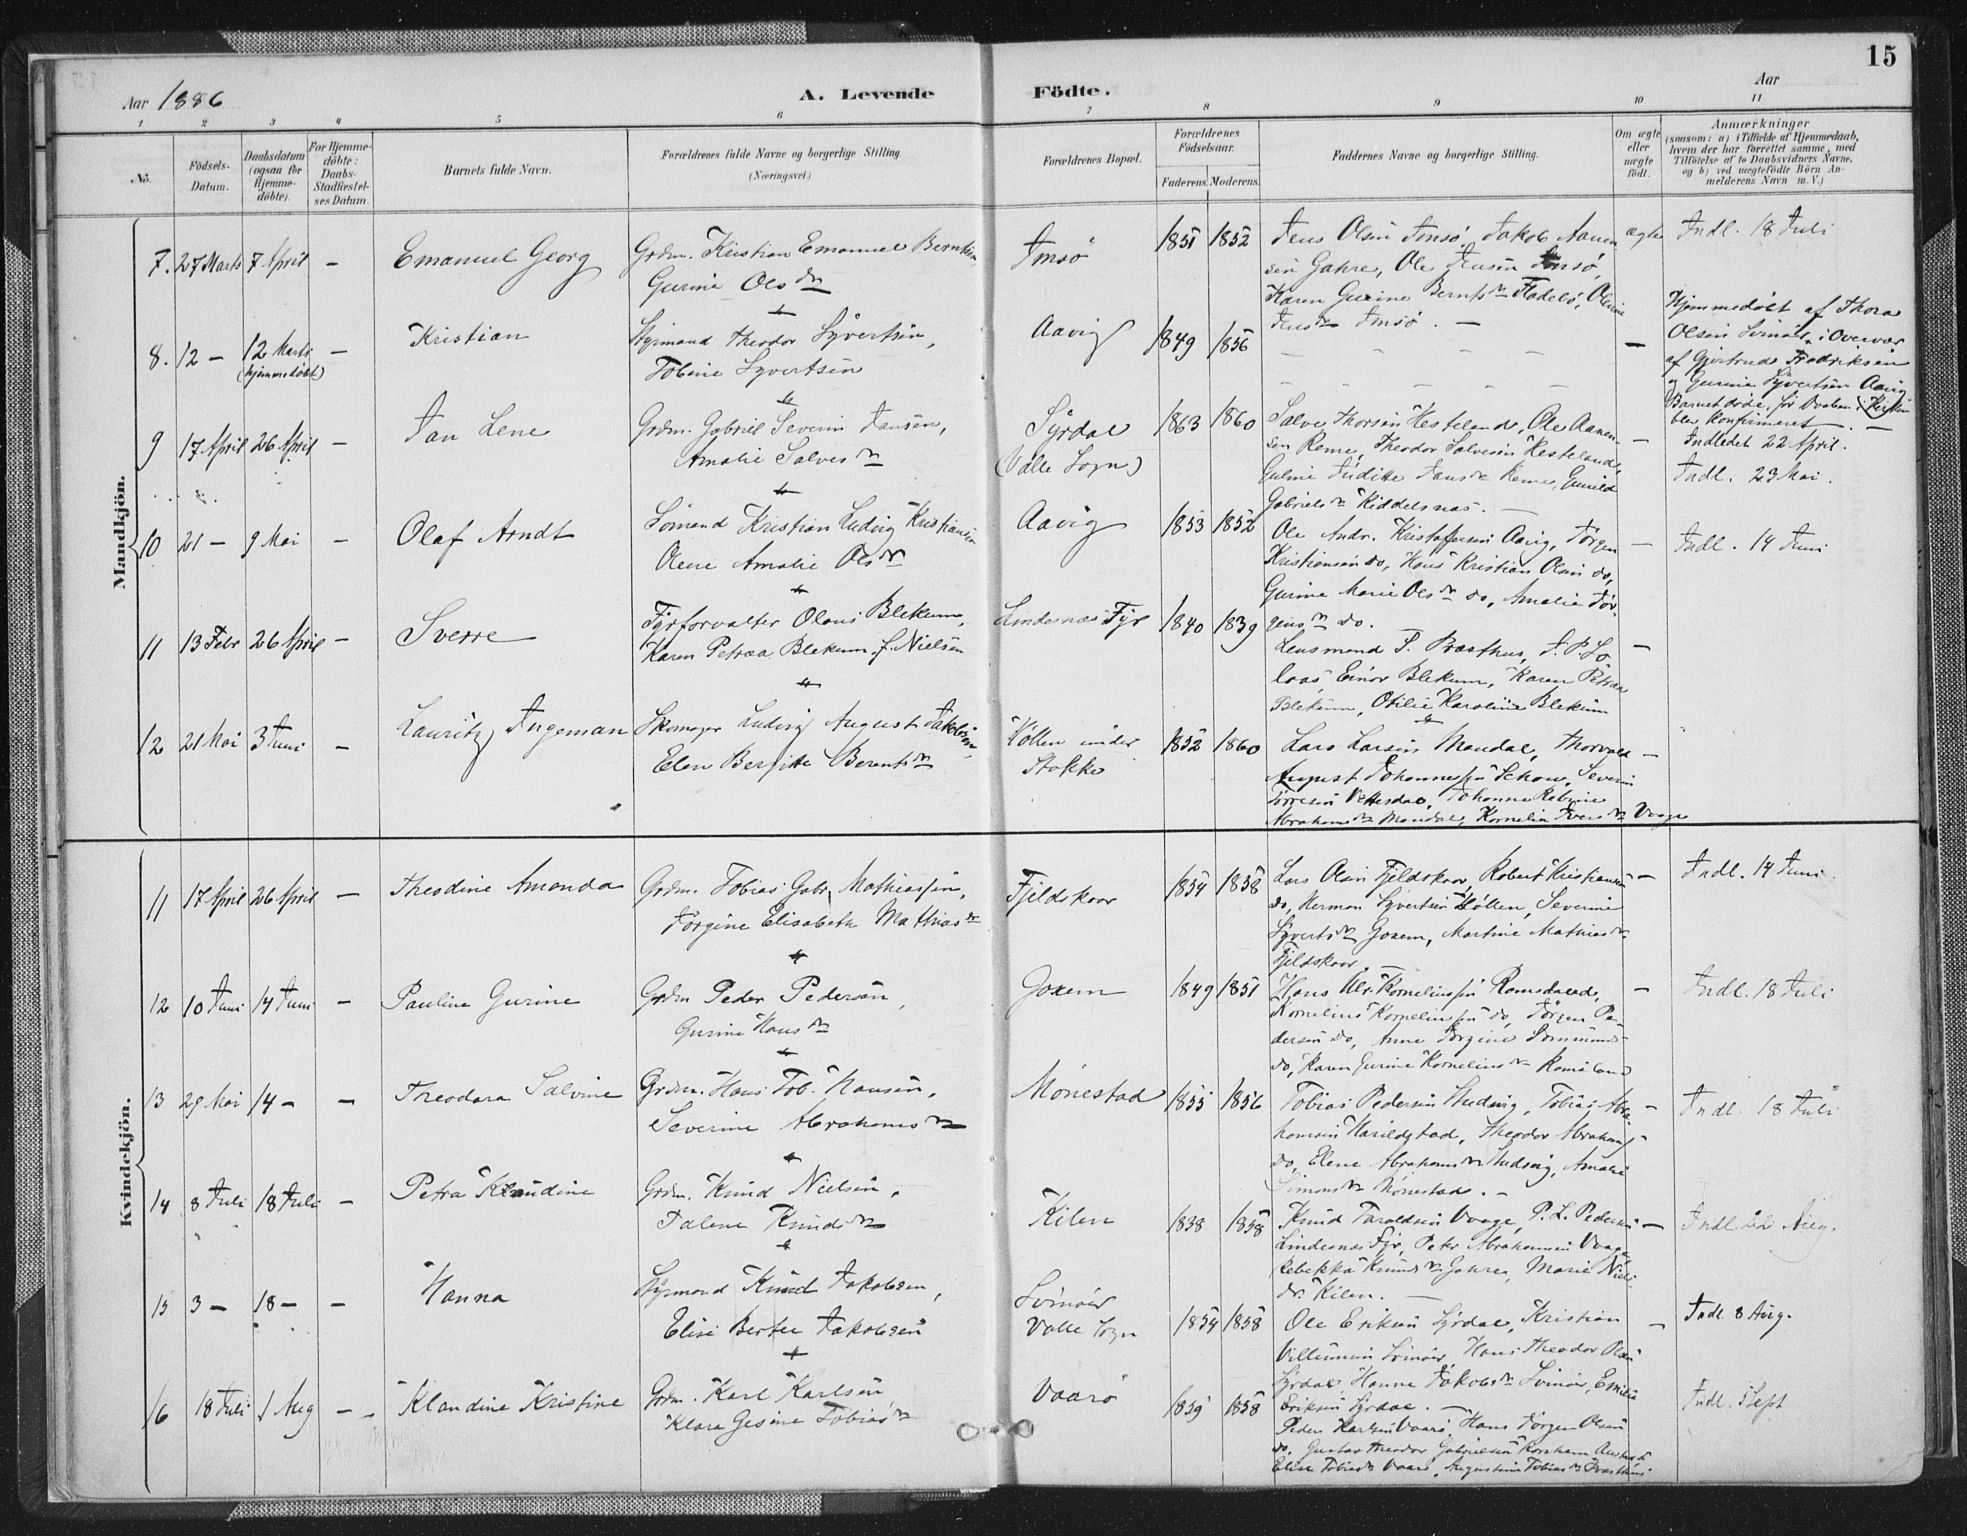 15
Aar 1886
A. Levende Födte.
Aar
1 2 3 4 5 6 7 8 9 10 11
No.
Födsels-Datum.
Daabsdatum (ogsaa for Hjemme-döbte).
For Hjemme-döbte: Daabs-Stadfæstel-ses Datum.
Barnets fulde Navn.
Forældrenes fulde Navne og borgerlige Stilling.
(Næringsvei.)
Forældrenes Bopæl.
Forældrenes Födselsaar.
Faderens. Moderens.
Faddernes Navne og borgerlige Stilling.
Om ægte eller uægte födt.
Anmærkninger
(saasom: a) i Tilfælde af Hjemmedaab,
hvem der har forrettet samme, med
Tilföielse af to Daabsvidners Navne,
og b) ved uægtefödte Börn An-
melderens Navn m. V.)
Mandkjön.
7. 27 Marts 7 April – Emanuel Georg
Grdm. Kristian Emanuel Berntsen
Gurine Olsdr
Imsö 1851 1852
Jens Olsen Imsö, Jakob Aanen-
sen Gahre, Ole Jensen Imsö,
Karen Gurine Berntsdr Fladelö, Oline
Jensdr Imsö. –
ægte
Indl. 18 Juli
8. 12 – 12 Marts (hjemmedöbt) – Kristian
Styrmand Theodor Syvertsen,
Tobine Syvertsen
Aavig 1849 1856
Hjemmedöbt af Thora
Olsen Svinör i Overvær
af Gjertrude Fredriksen
og Gurine Syvertsen Aavig
Barnet döde, för Daaben i Kirken
blev konfirmeret. –
9 17 April 26 April – Jan Lene
Grdm. Gabriel Severin Jansen,
Amalie Salvesdr
Syrdal
(Valle Sogn)
1863 1860
Salve Thorsen Hesteland, Ole Aanen-
sen Reme, Theodor Salvesen Hesteland,
Guline Juditte Jansdr Reme, Gunild
Gabrielsdr Kiddelsnæs. –
Indledet 22 April.
Indl. 23 Mai.
10 21 – 9 Mai – Olaf Arndt
Sömand Kristian Ludvig Kristiansen
Olene Amalie Olsdr
Aavig 1853 1852
Ole Andr. Kristoffersen Aavig, Jörgen
Kristiansen do, Hans Kristian Olsen do,
Gurine Marie Olsdr do, Amalie Jör-
gensdr do.
Indl. 14 Juni
11 13 Febr 26 April – Sverre
Fyrforvalter Olaus Blekum,
Karen Petrea Blekum, f. Nielsen
Lindesnæs Fyr 1840 1839
Lensmand T. Præsthus, J. P. Lo-
laas, Einar Blekum, Karen Petrea
Blekum, Otilie Karoline Blekum
12 21 Mai 3 Juni – Lauritz Ingeman
Skomager Ludvig August Jakobsen,
Elen Bergitte Berentsdr
Höllen under
Stokke
1852 1860
Lars Larsen Mandal, Thorvald
August Johannessen Schou, Severin
Törresen Vattesdal, Johanne Rebine
Abrahamsdr Mandal, Kornelia Iversdr Vaage
Kvindekjön.
11 17 April 26 April – Theodine Amanda
Grdm. Tobias Gabr. Mathiassen,
Jörgine Elisabeth Mathiasdr
Fjeldskaar 1854 1858
Lars Olsen Fjeldskaar, Robert Kristiansen
do, Herman Syvertsen Höllen, Severine
Syvertsdr Goxem, Martine Mathiasdr
Fjeldskaar.
Indl. 14 Juni.
12 10 Juni 14 Juni – Pauline Gurine
Grdm Peder Pedersen,
Gurine Hansdr
Goxem 1849 1851
Hans Ulr. Korneliussen Ramsdal,
Kornelius Korneliussen do, Jörgen Pe-
dersen do, Anne Jörgine
do, Karen Gurine Korneliusdr
Indl. 18 Juli
13 29 Mai 14 – – Theodora Salvine
Grdm. Hans Tob. Hansen,
Severine Abrahamsdr
Mönestad 1855 1856
Tobias Pedersen Hudsvig, Tobias Abra-
hamsen Harildstad, Theodor Abrahams
do, Elene Abrahamsdr Hudsvig, Amalie
Simonsdr Mönestad. –
Indl. 18 Juli
14 8 Juli 18 Juli – Petra Klaudine
Grdm. Knud Nielsen,
Talene Knudsdr
Kilen 1838 1858
Knud Taraldsen Vaage, P. L. Pedersen
Lindesnæs Fyr, Peter Abrahamsen Vaage,
Rebekka Knudsdr Gahre, Marie Niels
dr. Kilen. –
Indl. 22 Aug.
15 3 – 18 – – Hanna
Styrmand Knud Jakobsen,
Elise Berte Jakobsen
Svinör
Valle Sogn
1854 1858
Ole Eriksen Syrdal, Kristian
Villumsen Svinör, Hans Theodor Olsen
Syrdal, Hanne Jakobsdr Svinör, Emilie
Eriksen Syrdal. –
Indl 8 Aug.
16 18 Juli 1 Aug – Klaudine Kristine
Grdm. Karl Karlsen
Klara Gesine Tobiasdr
Vaarö 1859 1858
Peder Karlsen Vaarö, Hans Jörgen Olsen
do, Gustav Theodor Gabrielsen Korshamn
Elise Tobiasdr Vaarö, Augustine Tobiasdr Præsthus.
Indl. Sept